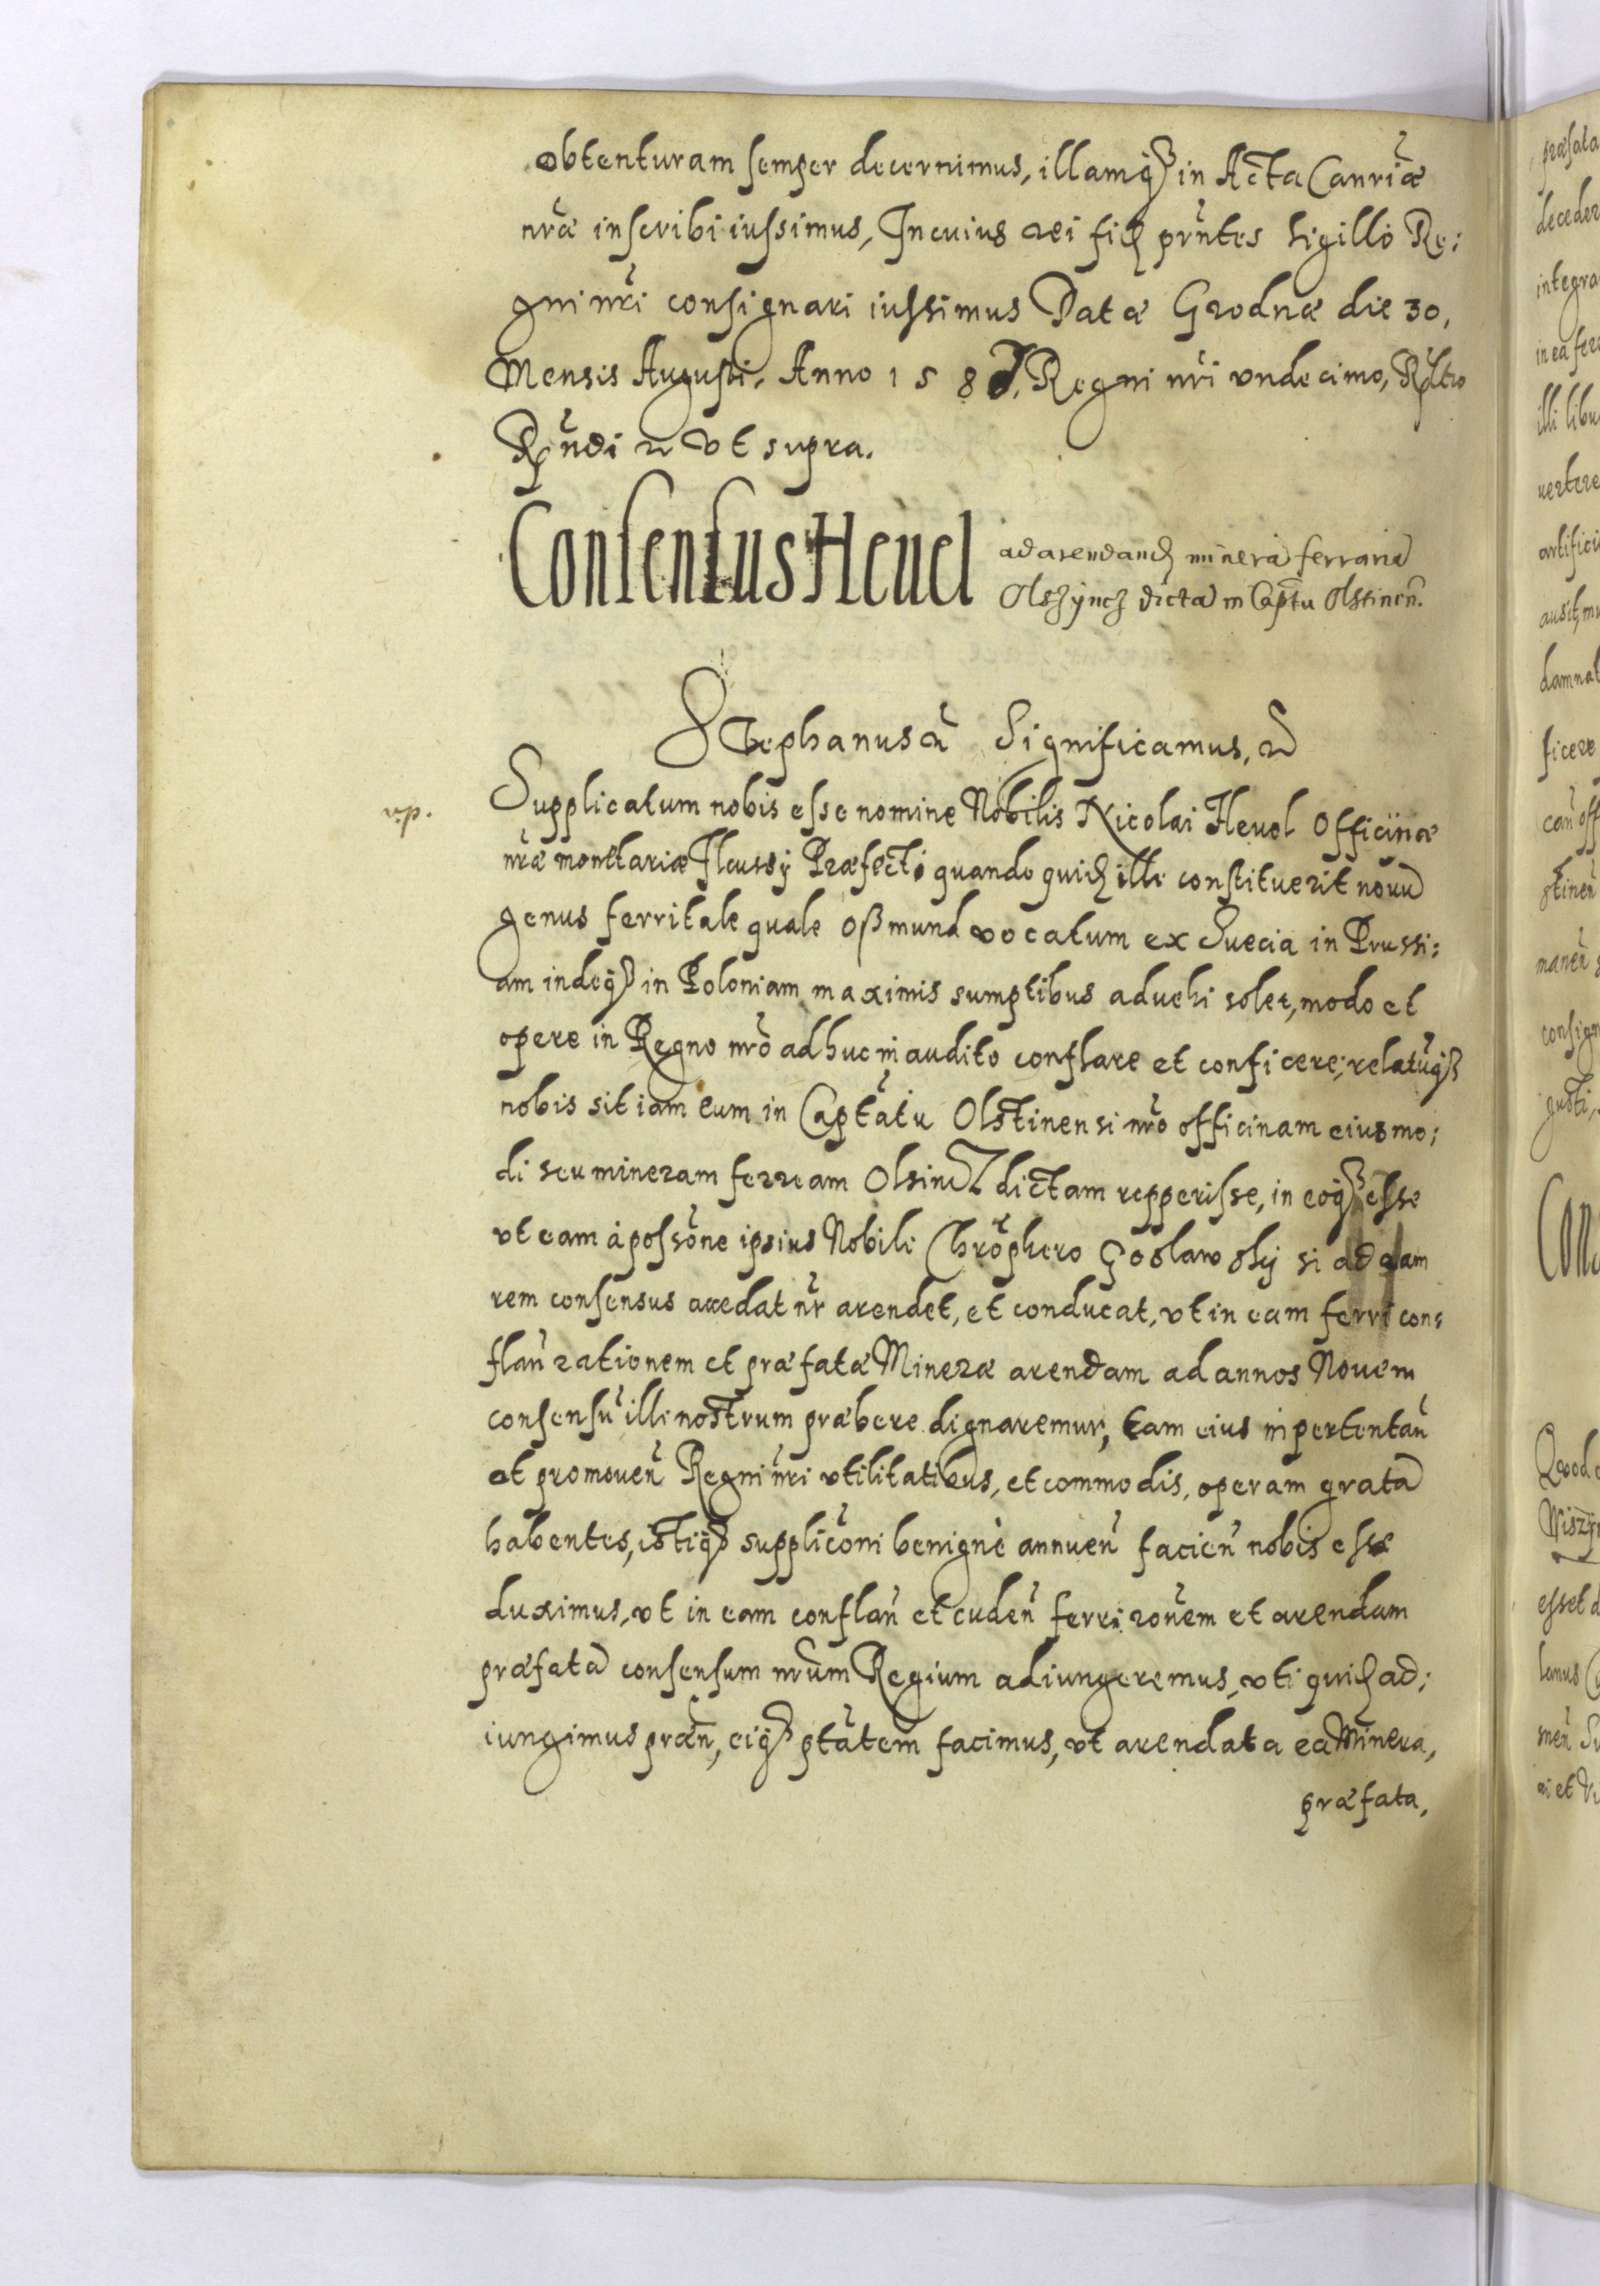 obtenturam semper decernimus, illamq̃ in Acta Canriæ
nræ inscribi iussimus, In cuius rei fid prntes Sigillo Re:
gni nri consignari iussimus Datæ Grodnæ die 30,
Mensis Augusti, Anno 158 Regni nri vndecimo,
vt supra.
Consensus Hevel
ad arendand minerã ferrariã
Olszyncz dictã in Captu Olstinen.
Stephanus Significamus,
Supplicatum nobis esse nomine Nobilis Nicolai Hevel Officinæ
nræ monetariæ Ilcussÿ Præfecti quando quid ille constituerit nouũ
genus ferri tale quale Oßmund vocatum ex Suecia in Prussi:
am indeq̃ in Poloniam maximis sumptibus aduehi solet, modo et
opere in Regno nro adhuc inaudito conflare et conficere; relatũq̃
nobis sit iam eum in Captatu Olstinensi nro officinam eiusmo:
di seu mineram ferream Olsincz dictam repperisse, in eoq̃ esse
vt eam à possone ipsius Nobili Chrophero Goslawskÿ si ad eam
rem consensus accedat nr arendet, et conducat, vt in eam ferri con:
flan rationem et præfatæ Mineræ arendam ad annos Nouem
consensũ illi nostrum præbere dignaremur, tam eius in pertentan
et promouen Regni nri vtilitatibus, et commodis, operam gratã
habentes, istiq̃ supplicõni benignè annuen facien nobis esse
duximus, vt in eam conflan et cuden ferri ronem et arendam
præfatã consensum nrum Regium adiungeremus, vti quid ad:
iungimus præn, eiq̃ ptatem facimus, vt arendata ea Minera,
præfata,